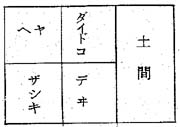 土間
ダイドコ
デヰ
ヘヤ
ザシキ